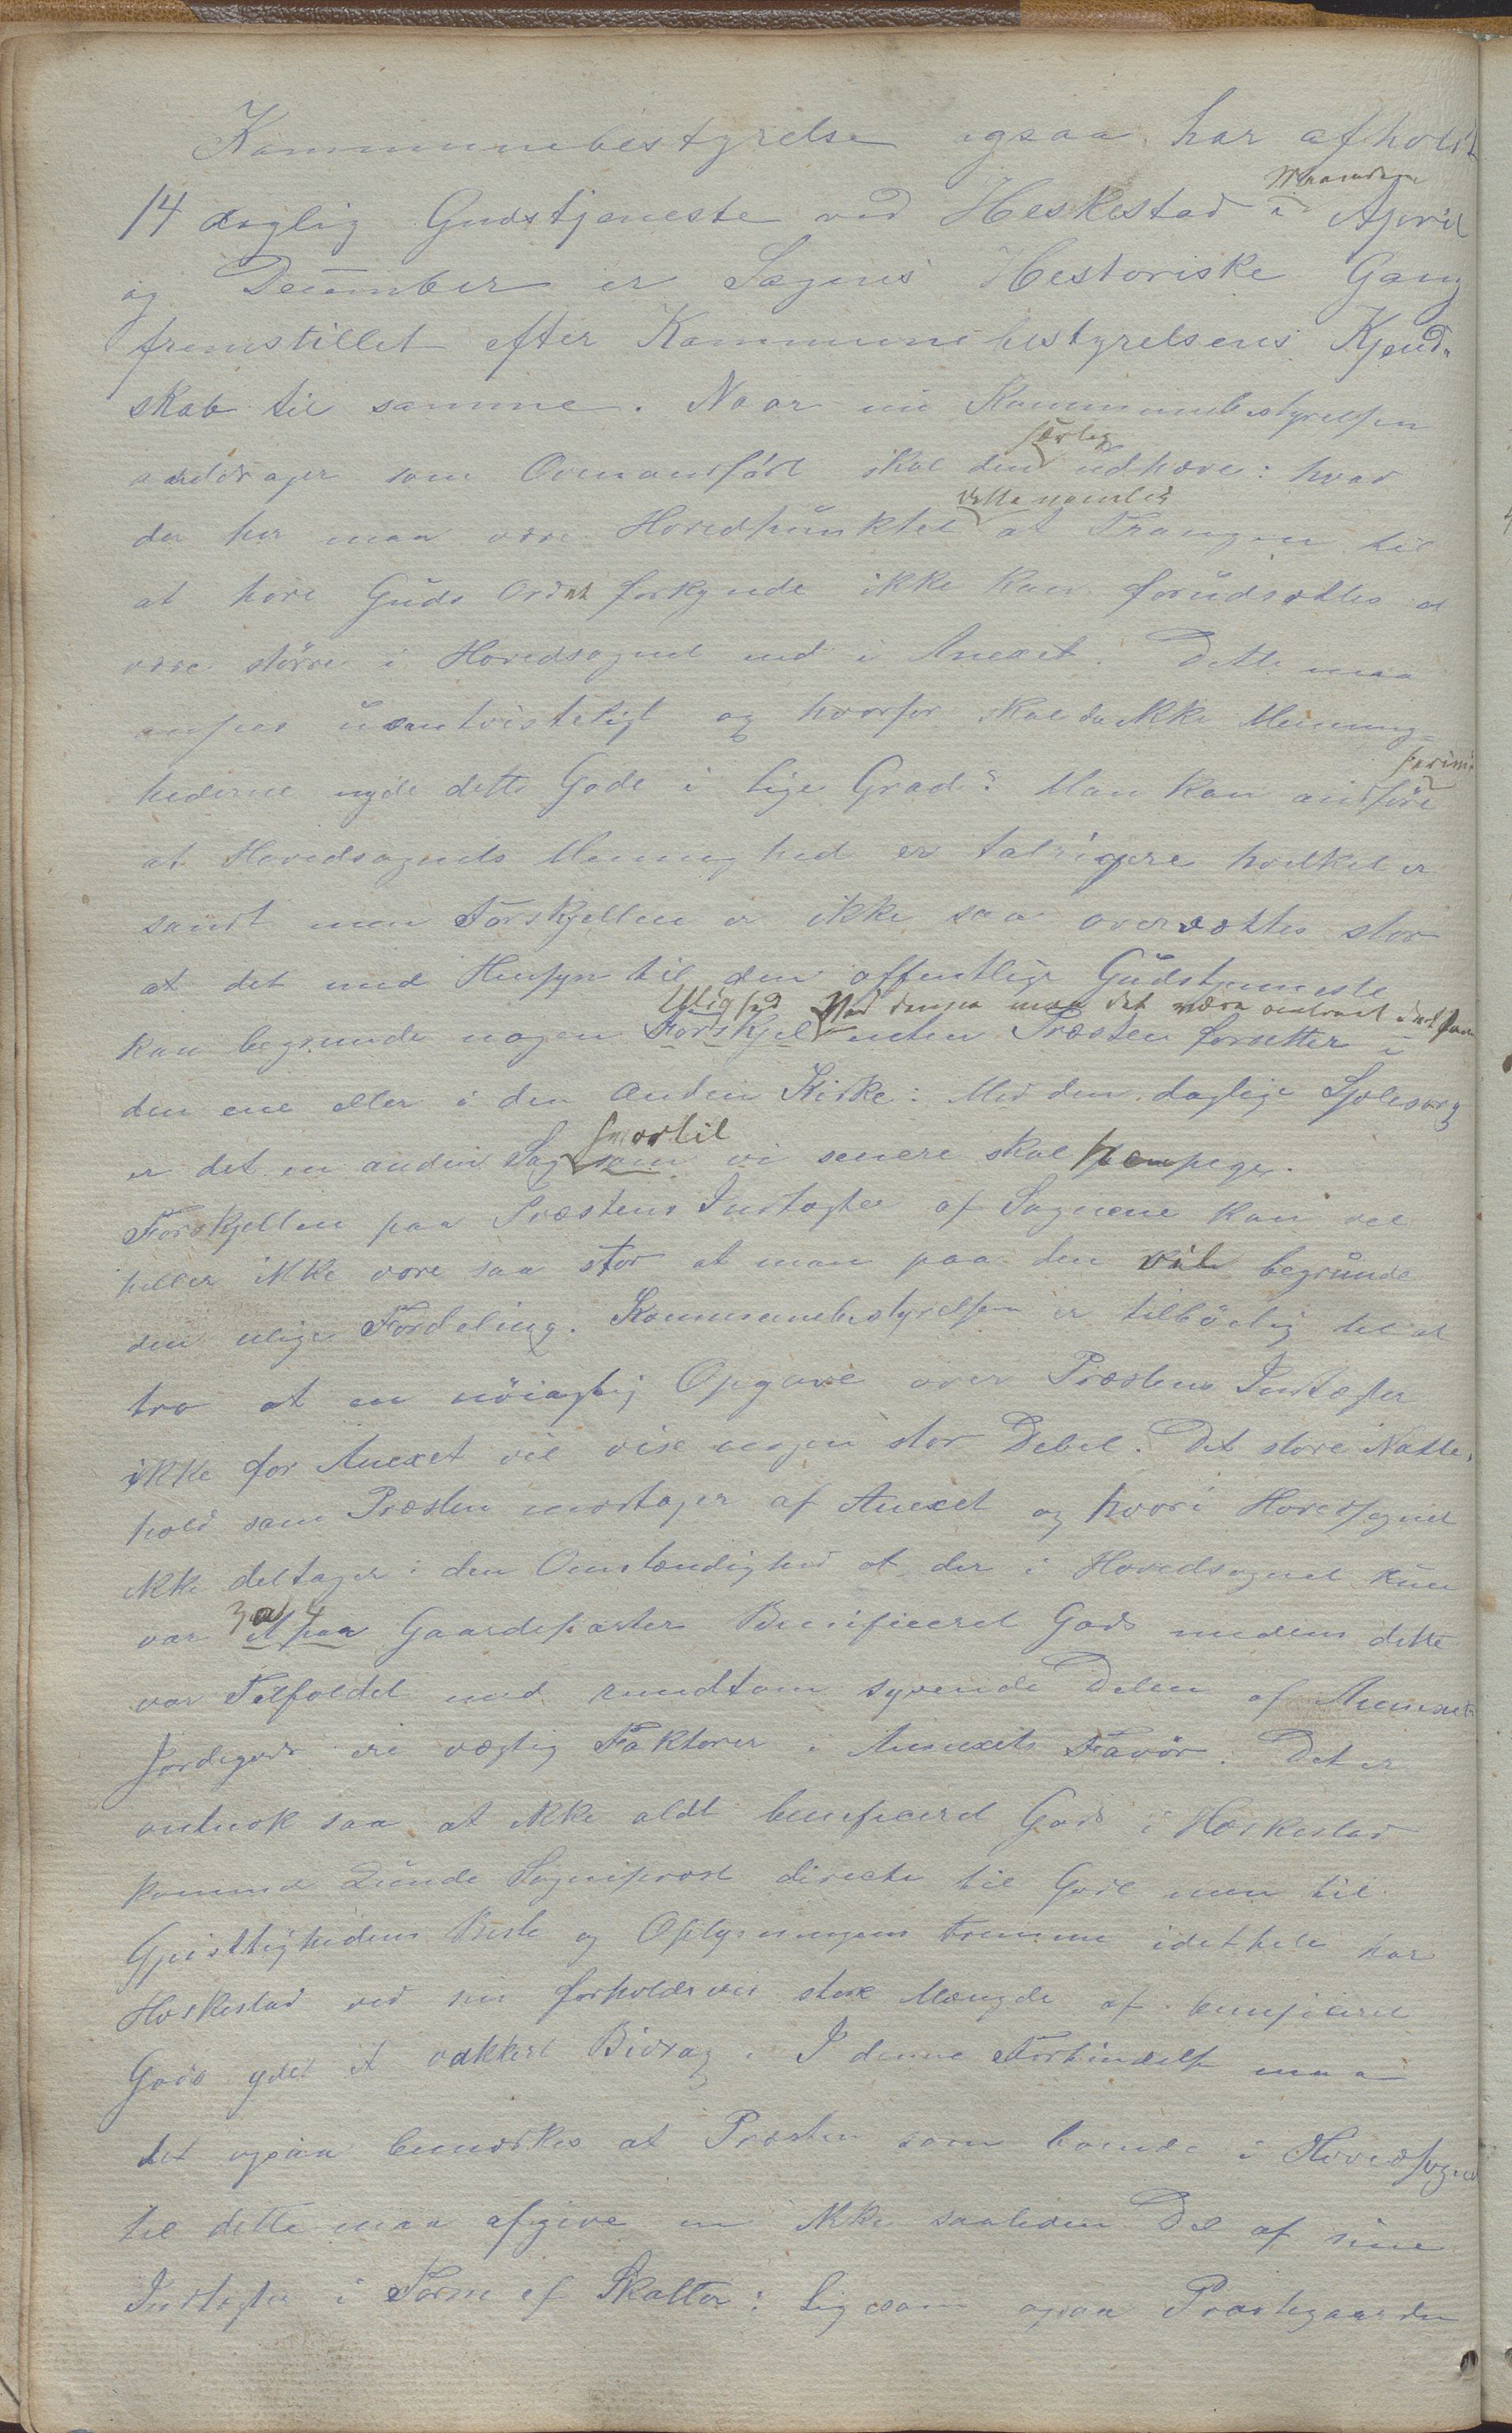 Kommunebestyrelse ogsaa har afholdt
Maanderne
14 daglig Gudstjeneste ved Heskestad i April
og December er Sagens Hestoriske Gang
fremstillet efter Kommunebestyrelsens Kjend-
skab til samme. Naar nu Kommunebestyrelsen
særlig
anddrager som Ovenanført skal den udhæve: hvad
dette nemlig
der her maa være Hovedpunktet at Trangen til
at høre Guds Ordet forkynde ikke kan forudsættes at
være større i Hovedsognet end i Anexet. Dette maa
ansees uomtvisteligt og hvorfor skal da ikke Menig-
hederne nyde dette Gode i lige Grad? Man kan anføre
at Hovedsognets Menighed er talrigere hvilket er
sandt men Forskjellen er ikke saa overvættes stor
at det med Hensyn til den offentlige Gudstjeneste
Ulighed Ved denne maa det være
kan begrunde nogen Forskjel enten Præsten forretter i
den ene eller i den anden Kirke: Med den daglige Sjælesorg
hvortil
er det en anden Sag som vi senere skal henpege.
Forskjellen paa Præstens Indtægter af Sognene kan vel
heller ikke være saa stor at man paa den vil begrunde
den ulige Fordeling. Kommunebestyrelsen er tilbøelig til at
tro at en nøiagtig Opgave over Præstens Indtægter
ikke for Anexet vil vise nogen stor Debet. Det store Natte-
hold som Præsten modtager af Anexet og hvori Hovedsognet
ikke deltager: den Omstændighed at der i Hovedsognet kun
3 a 4
var et paa Gaardeparter Benificeret Gods medens dette
var Tilfældet med rundtom syvende Delen af Annexets
Jordegods ere vægtig Faktorer i Annexets Favør. Det er
vistnok saa at ikke aldt benificeret Gods i Heskestad
kommer Lunde Sogneprest directe til Gode men til
Gjeistlighedens Beste og Oplysningens Fremme idethele har
Heskestad ved sin forholdsvis store Mængde af benificeret
Gods ydet et vakkert Bidrag. I denne Forbindelse maa
det ogsaa bemærkes at Præsten som boende i Hovedsognet
til dette maa afgive en ikke saaliden Del af sine
Indtægter i Form af Skatter: Ligesom ogsaa Præstegaarden